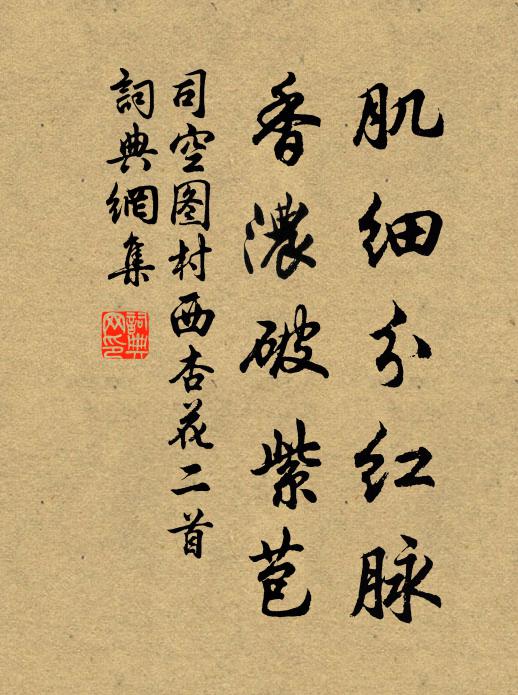 肌细分红脉
香濃破紫苞
司空图村西杏花二首
詞典網集
詞典网印